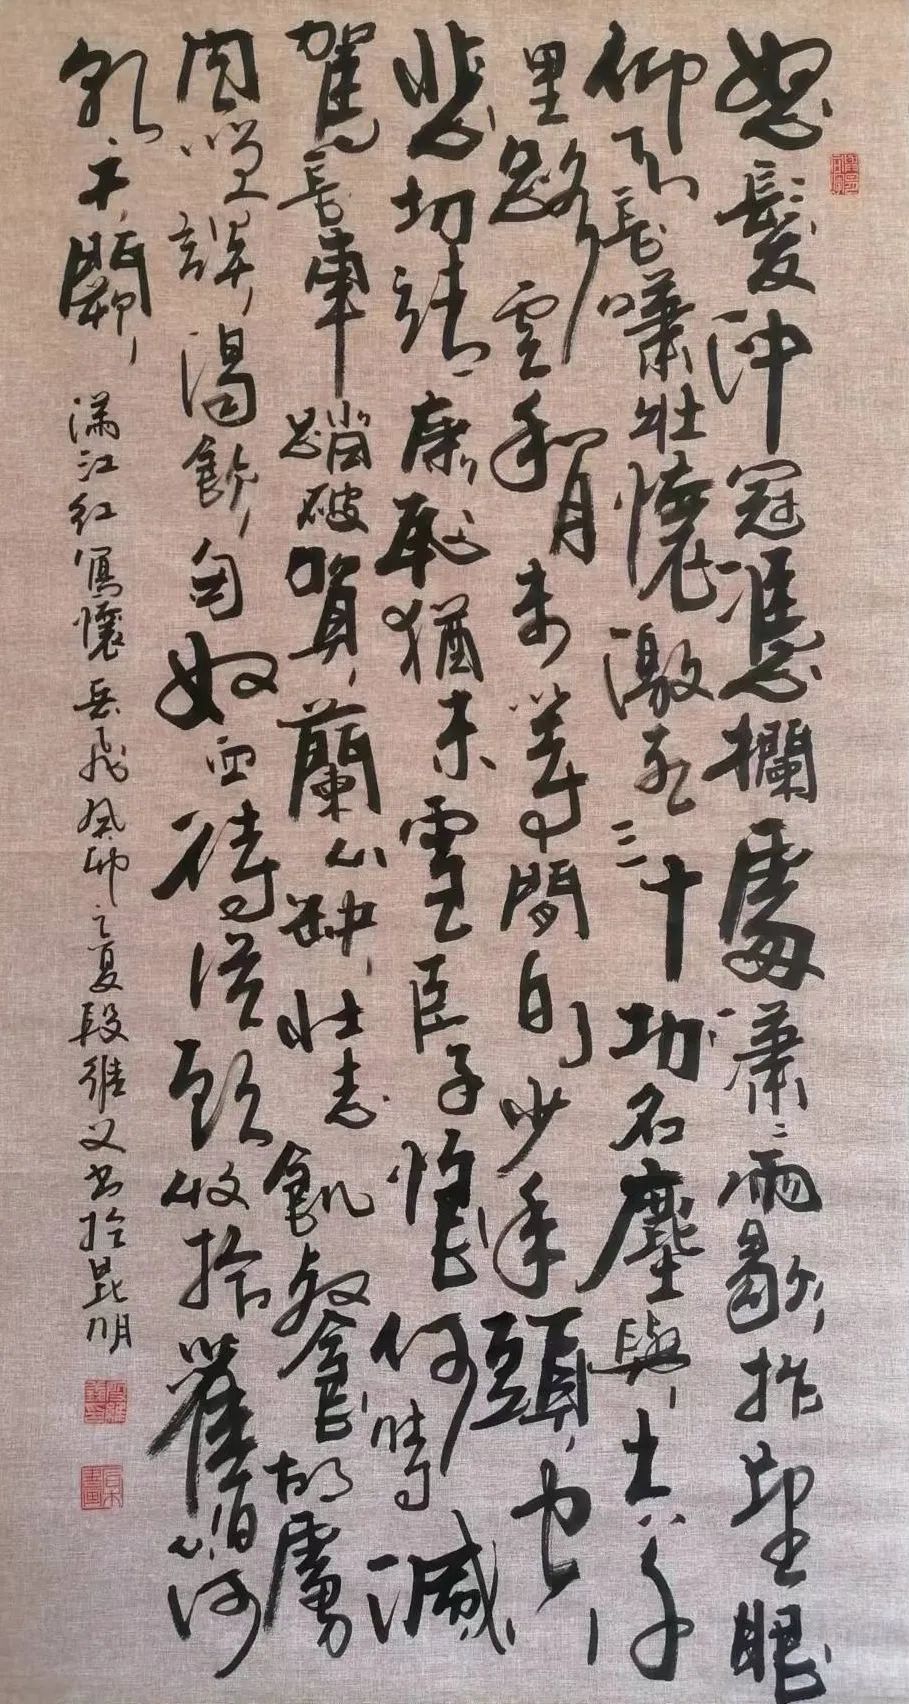 怒髮沖冠憑欄處瀟瀟雨歇抬望眼
仰天長嘯壯懷激烈三十功名塵與土八千
里路雲和月莫等間白了少年頭空
悲切靖康恥猶未雪臣子恨何時滅
駕長車踏破賀蘭山缺壯志飢餐胡虜
肉笑談渴飲匈奴血待從頭收拾舊山河
朝天闕
滿江紅寫懷岳飛癸卯之夏段維义書於昆明